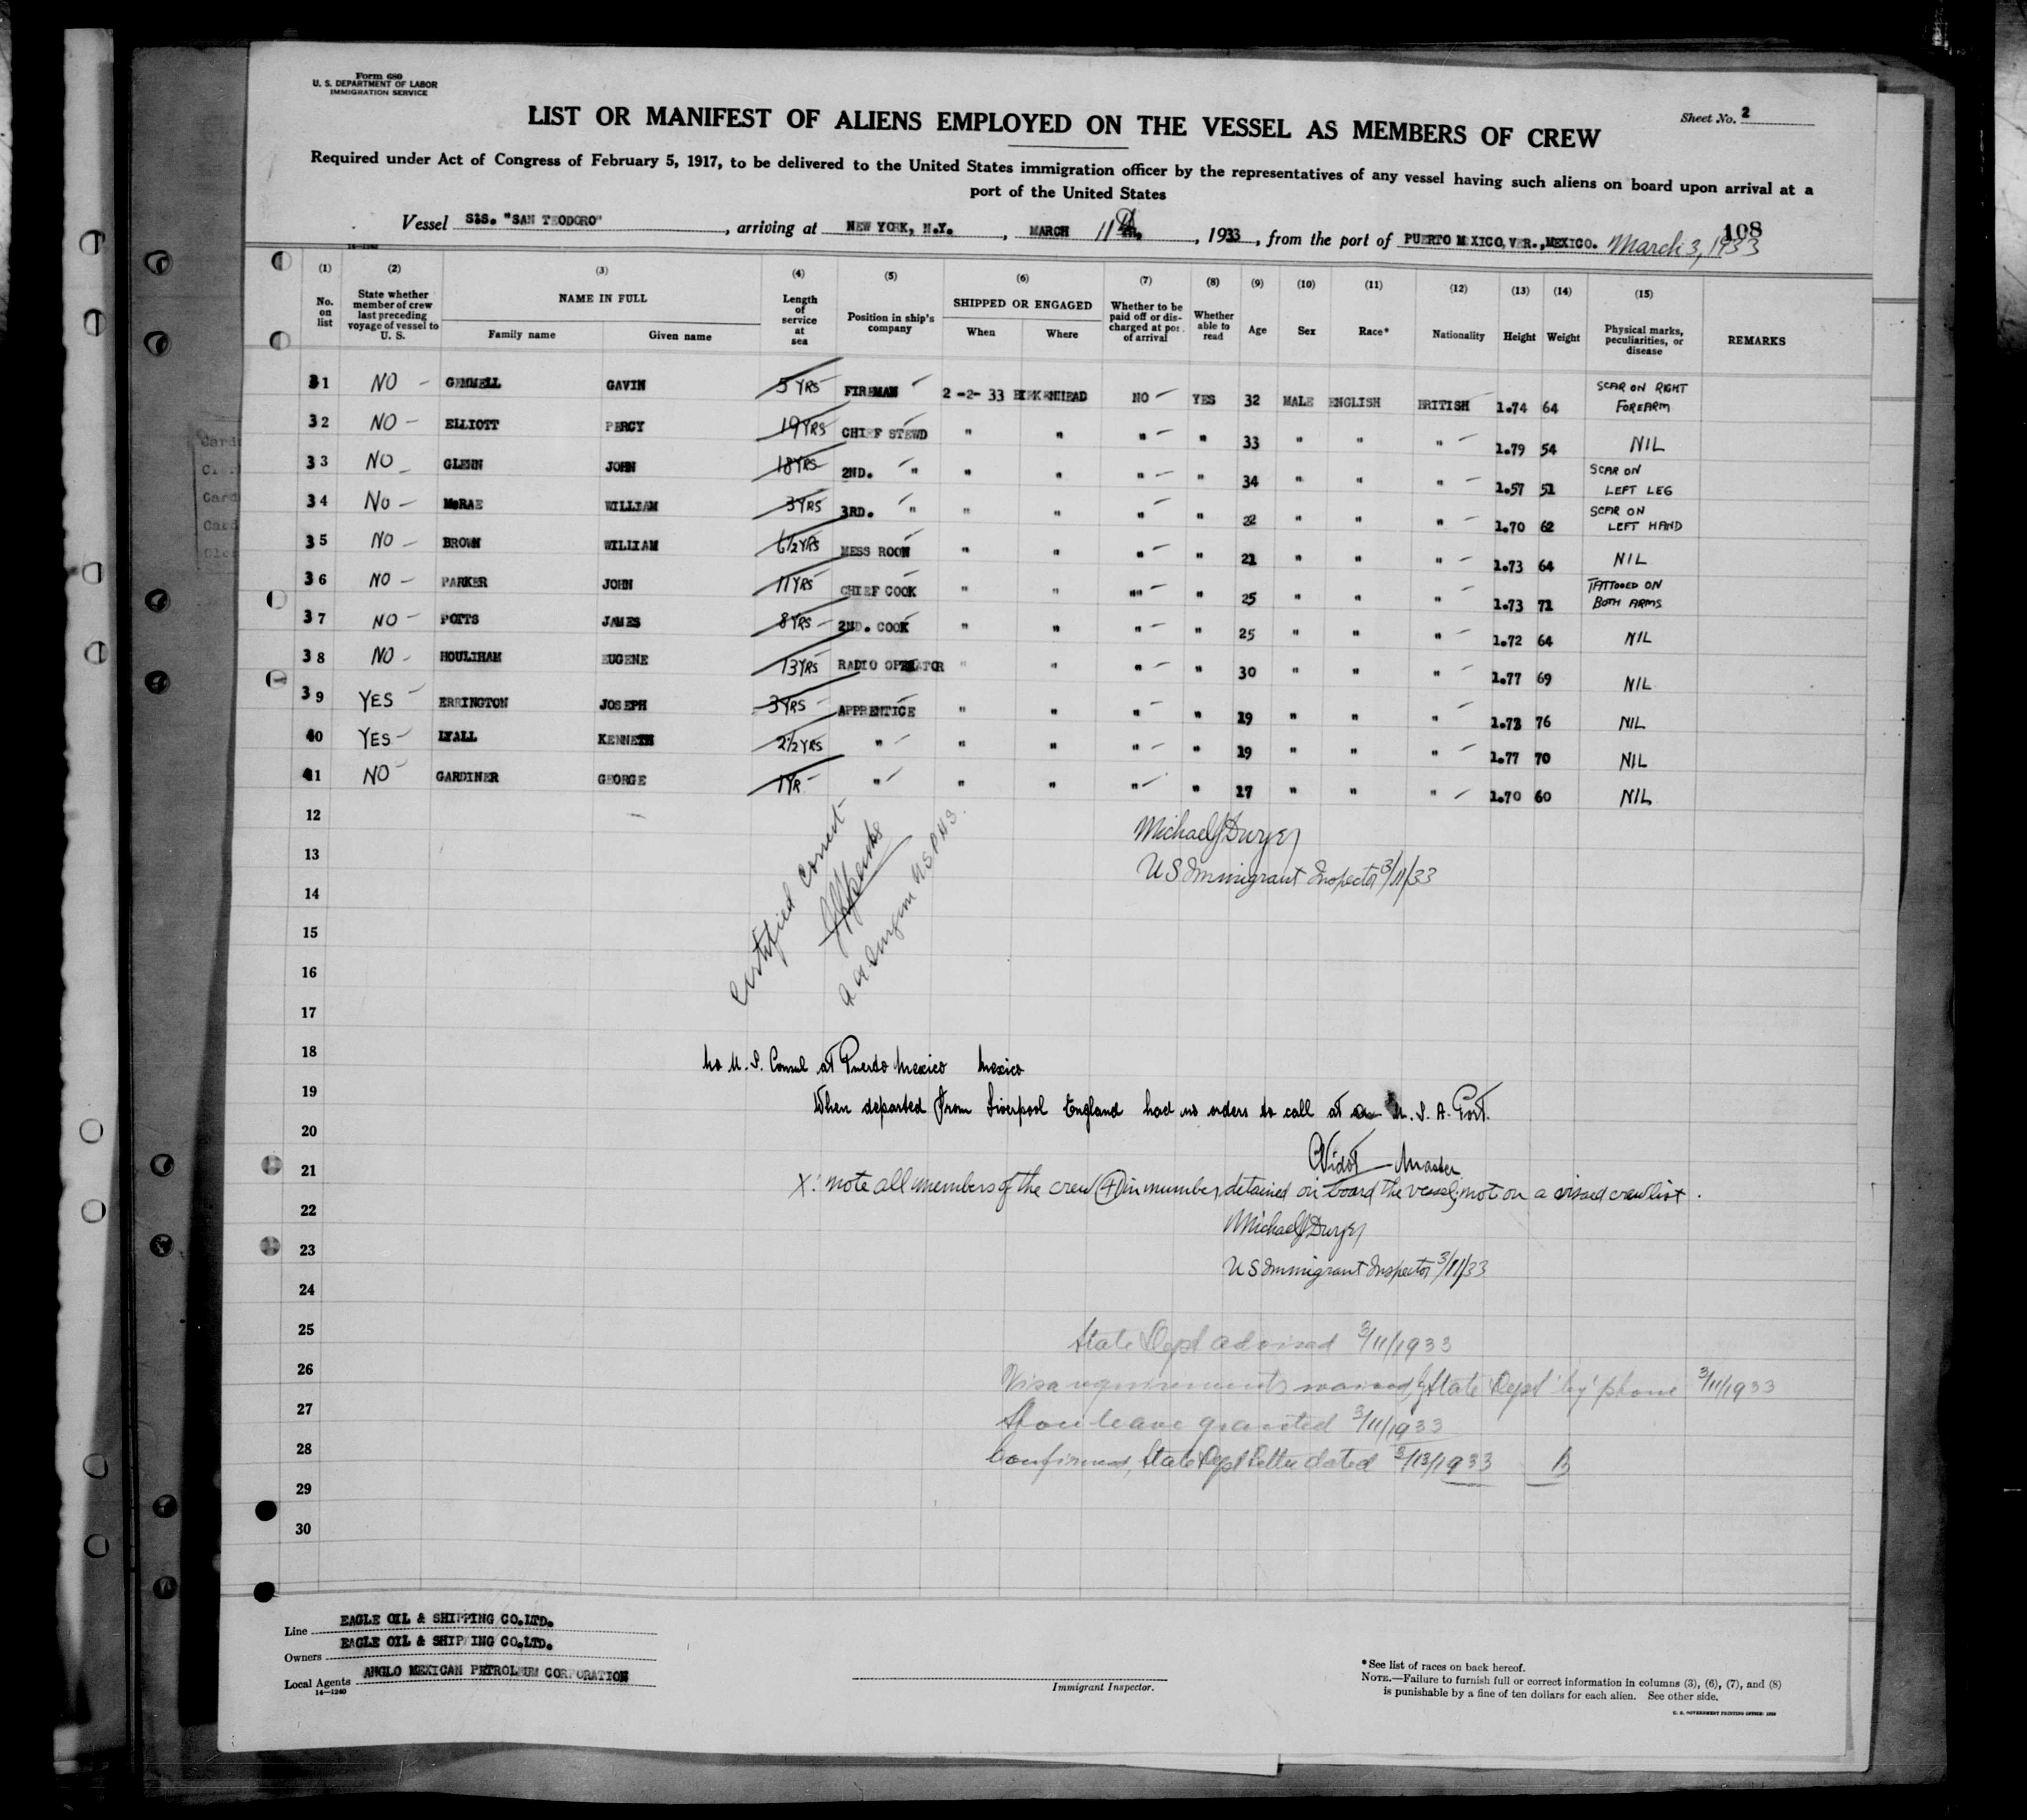 Form 680
U. S. DEPARTMENT OF LABOR
IMMIGRATION SERVICE
Sheet No. 2
LIST OR MANIFEST OF ALIENS EMPLOYED ON THE VESSEL AS MEMBERS OF CREW
Required under Act of Congress of February 5, 1917, to be delivered to the United States immigration officer by the representatives of any vessel having such aliens on board upon arrival at a
port of the United States
108
Vessel S.S. "SAN TEODORO", arriving at NEW YORK, N.Y., MARCH 11th, 1933, from the port of PUERTO MEXICO, VER., MEXICO. March 3, 1933
14-1240
(1) (2) (3) (4) (5) (6) (7) (8) (9) (10) (11) (12) (13) (14) (15)
No. on list State whether member of crew last preceding voyage of vessel to U. S. NAME IN FULL Family name Given name Length of service at sea Position in ship's company SHIPPED OR ENGAGED When Where Whether to be paid off or discharged at port of arrival Whether able to read Age Sex Race* Nationality Height Weight Physical marks, peculiarities, or disease REMARKS
31 NO - GEMMELL GAVIN 5 YRS FIREMAN 2-2-33 BIRKENHEAD NO YES 32 MALE ENGLISH BRITISH 1.74 64 SCAR ON RIGHT FOREARM
32 NO - ELLIOTT PERCY 19 YRS CHIEF STEWD " " " " 33 " " " 1.79 54 NIL
33 NO - GLENN JOHN 18 YRS 2ND. " " " " " 34 " " " 1.57 51 SCAR ON LEFT LEG
34 NO - McRAE WILLIAM 3 YRS 3RD. " " " " " 22 " " " 1.70 62 SCAR ON LEFT HAND
35 NO - BROWN WILLIAM 6½ YRS MESS ROOM " " " " 21 " " " 1.73 64 NIL
36 NO - PARKER JOHN 11 YRS CHIEF COOK " " "" " 25 " " " 1.73 71 TATTOOED ON BOTH ARMS
37 NO - POTTS JAMES 8 YRS 2ND. COOK " " " " 25 " " " 1.72 64 NIL
38 NO - HOULIHAN EUGENE 13 YRS RADIO OPERATOR " " " " 30 " " " 1.77 69 NIL
39 YES - ERRINGTON JOSEPH 3 YRS APPRENTICE " " " " 19 " " " 1.73 76 NIL
40 YES - LYALL KENNETH 2½ YRS " " " " " 19 " " " 1.77 70 NIL
41 NO - GARDINER GEORGE 1 YR " " " " " 17 " " " 1.70 60 NIL
12
13
14
Michael J Dwyer
US Immigrant Inspector 3/11/33
Certified Correct
a a Surgeon USPHS.
15
16
17
18
No U. S. Consul at Puerto Mexico Mexico
19
When departed from Liverpool England had no orders to call at a U. S. A. Port.
20
Master
21
X: note all members of the crew (41) in number, detained on board the vessel, not on a visaed crew list.
22
Michael J Dwyer
23
US Immigrant Inspector 3/11/33
24
25
State Dept advised 3/11/1933
26
Visa requirements waived by State Dept by phone 3/11/1933
27
Shore leave granted 3/11/1933
28
Confirmed, State Dept Letter dated 3/13/1933
29
30
Line EAGLE OIL & SHIPPING CO.LTD.
Owners EAGLE OIL & SHIPPING CO.LTD.
Local Agents ANGLO MEXICAN PETROLEUM CORPORATION
14-1240
Immigrant Inspector.
*See list of races on back hereof.
NOTE.—Failure to furnish full or correct information in columns (3), (6), (7), and (8)
is punishable by a fine of ten dollars for each alien. See other side.